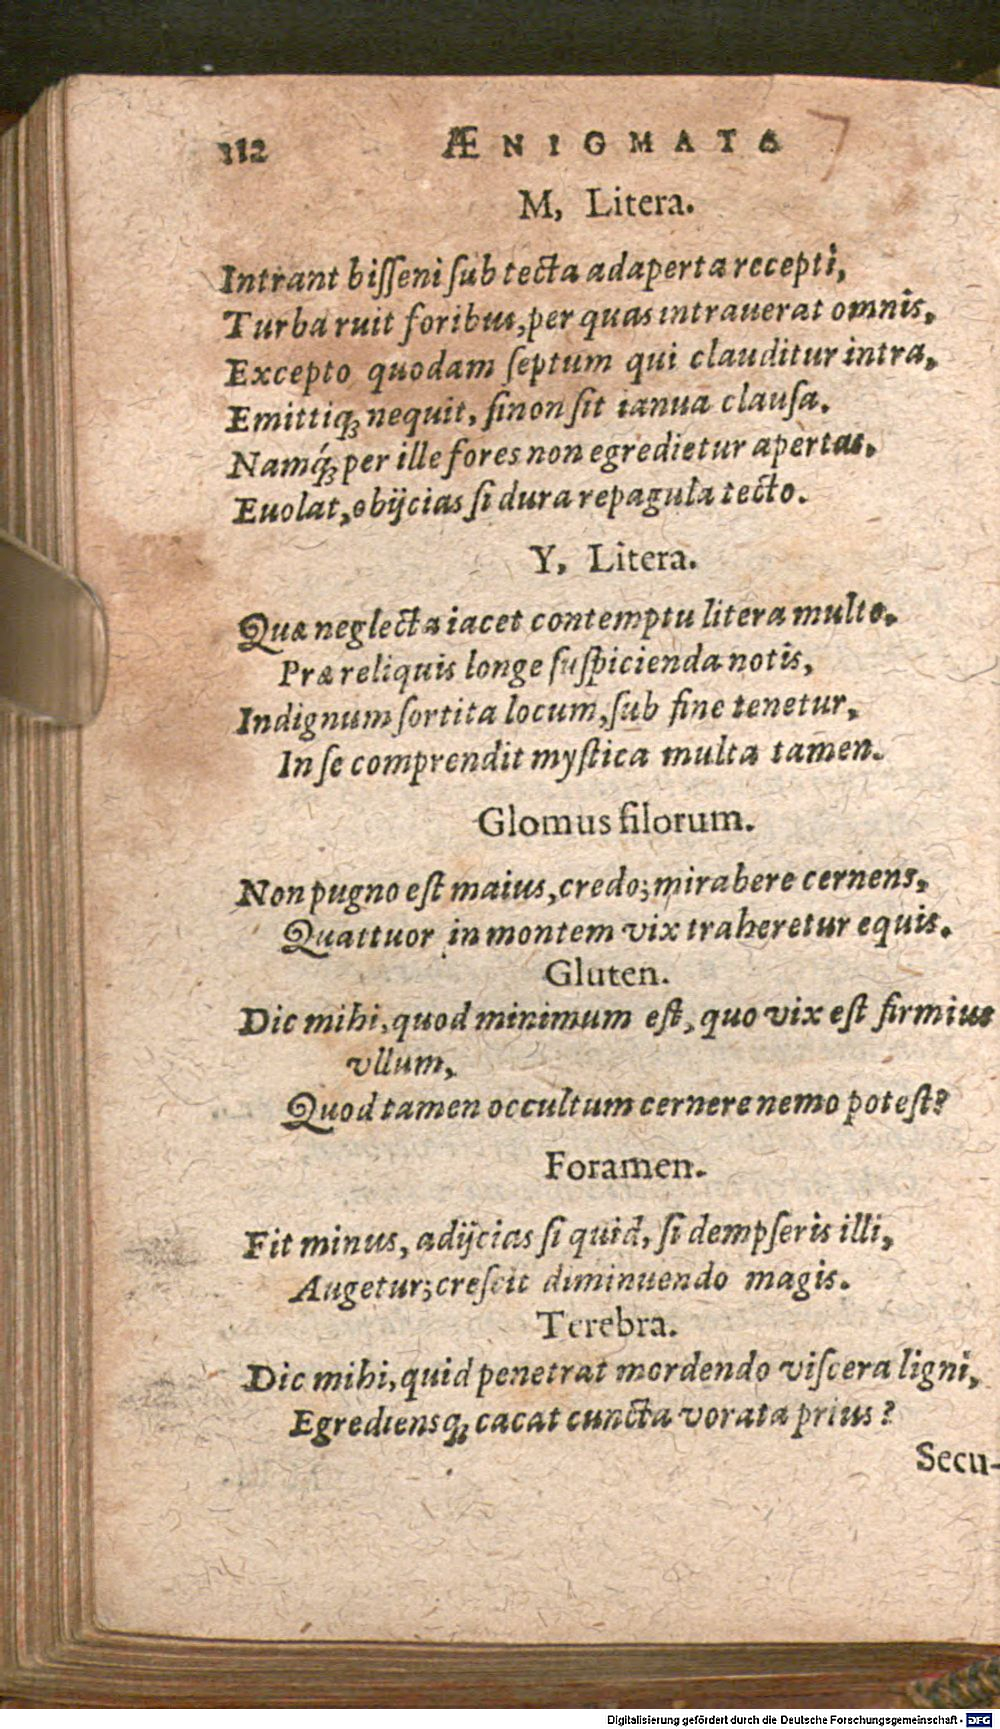 112 ÆNIGMATA
M, Litera.
Intrant bisseni sub tecta adaperta recepti,
Turba ruit foribus, per quas intrauerat omnis,
Excepto quodam septum qui clauditur intra,
Emittiq́ꝫ nequit, si non sit ianua clausa.
Namq́ꝫ per ille fores non egredietur apertas,
Euolat, obijcias si dura repagula tecto.
Y, Litera.
Quæ neglecta iacet contemptu litera multo,
Præ reliquis longe suspicienda notis,
Indignum sortita locum, sub fine tenetur,
In se comprendit mystica multa tamen.
Glomus filorum.
Non pugno est maius, credo; mirabere cernens,
Quattuor in montem vix traheretur equis.
Gluten.
Dic mihi, quod minimum est, quo vix est firmius
vllum,
Quod tamen occultum cernere nemo potest?
Foramen.
Fit minus, adijcias si quid, si dempseris illi,
Augetur; crescit diminuendo magis.
Terebra.
Dic mihi, quid penetrat mordendo viscera ligni,
Egrediensqꝫ cacat cuncta vorata prius?
Secu-
Digitalisierung gefördert durch die Deutsche Forschungsgemeinschaft - DFG